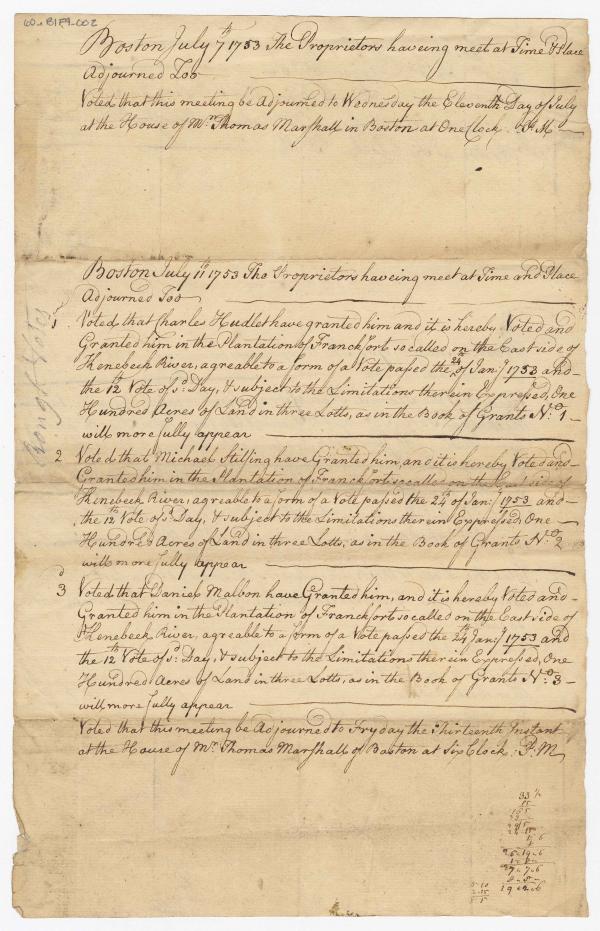 60-B1F9-002
Boston July 7th 1753 The Proprietors haveing meet at Time & Place
Adjourned Too
Voted that this meeting be Adjourned to Wednesday the Eleventh Day of July
at the House of Mr Thomas Marshall in Boston at One Clock P:M
Boston July 11th 1753 The Proprietors haveing meet at Time and Place
Adjourned Too
1 Voted that Charles Hudlet have granted him and it is hereby Voted and
Granted him in the Plantation of Franckfort so called on the East side of
Khenebeck River, agreable to a form of a Vote passed the 24th of Janry 1753 and
the 12th Vote of sd Day, & subject to the Limitations therein Expressed, One
Hundred Acres of Land in three Lotts, as in the Book of Grants No 1
will more fully appear
2 Voted that Michael Stilfing have Granted him, and it is hereby Voted and
Granted him in the Plantation of Franckfort so called on the East side of
Khenebeck River, agreable to a form of a Vote passed the 24th of Janry 1753 and
the 12th Vote of sd Day, & subject to the Limitations therein Expressed, One
Hundred Acres of Land in three Lotts, as in the Book of Grants No 2
will more fully appear
3 Voted that Daniel Malbon have Granted him, and it is hereby Voted and
Granted him in the Plantation of Franckfort so called on the East side of
Khenebeck River, agreable to a form of a Vote passed the 24 Janry 1753 and
the 12th Vote of sd Day, & subject to the Limitations therein Expressed, One
Hundred Acres of Land in three Lotts, as in the Book of Grants No 3
will more fully appear
Voted that this meeting be Adjourned to Fryday the Thirteenth Instant
at the House of Mr Thomas Marshall of Boston at Six Clock P:M